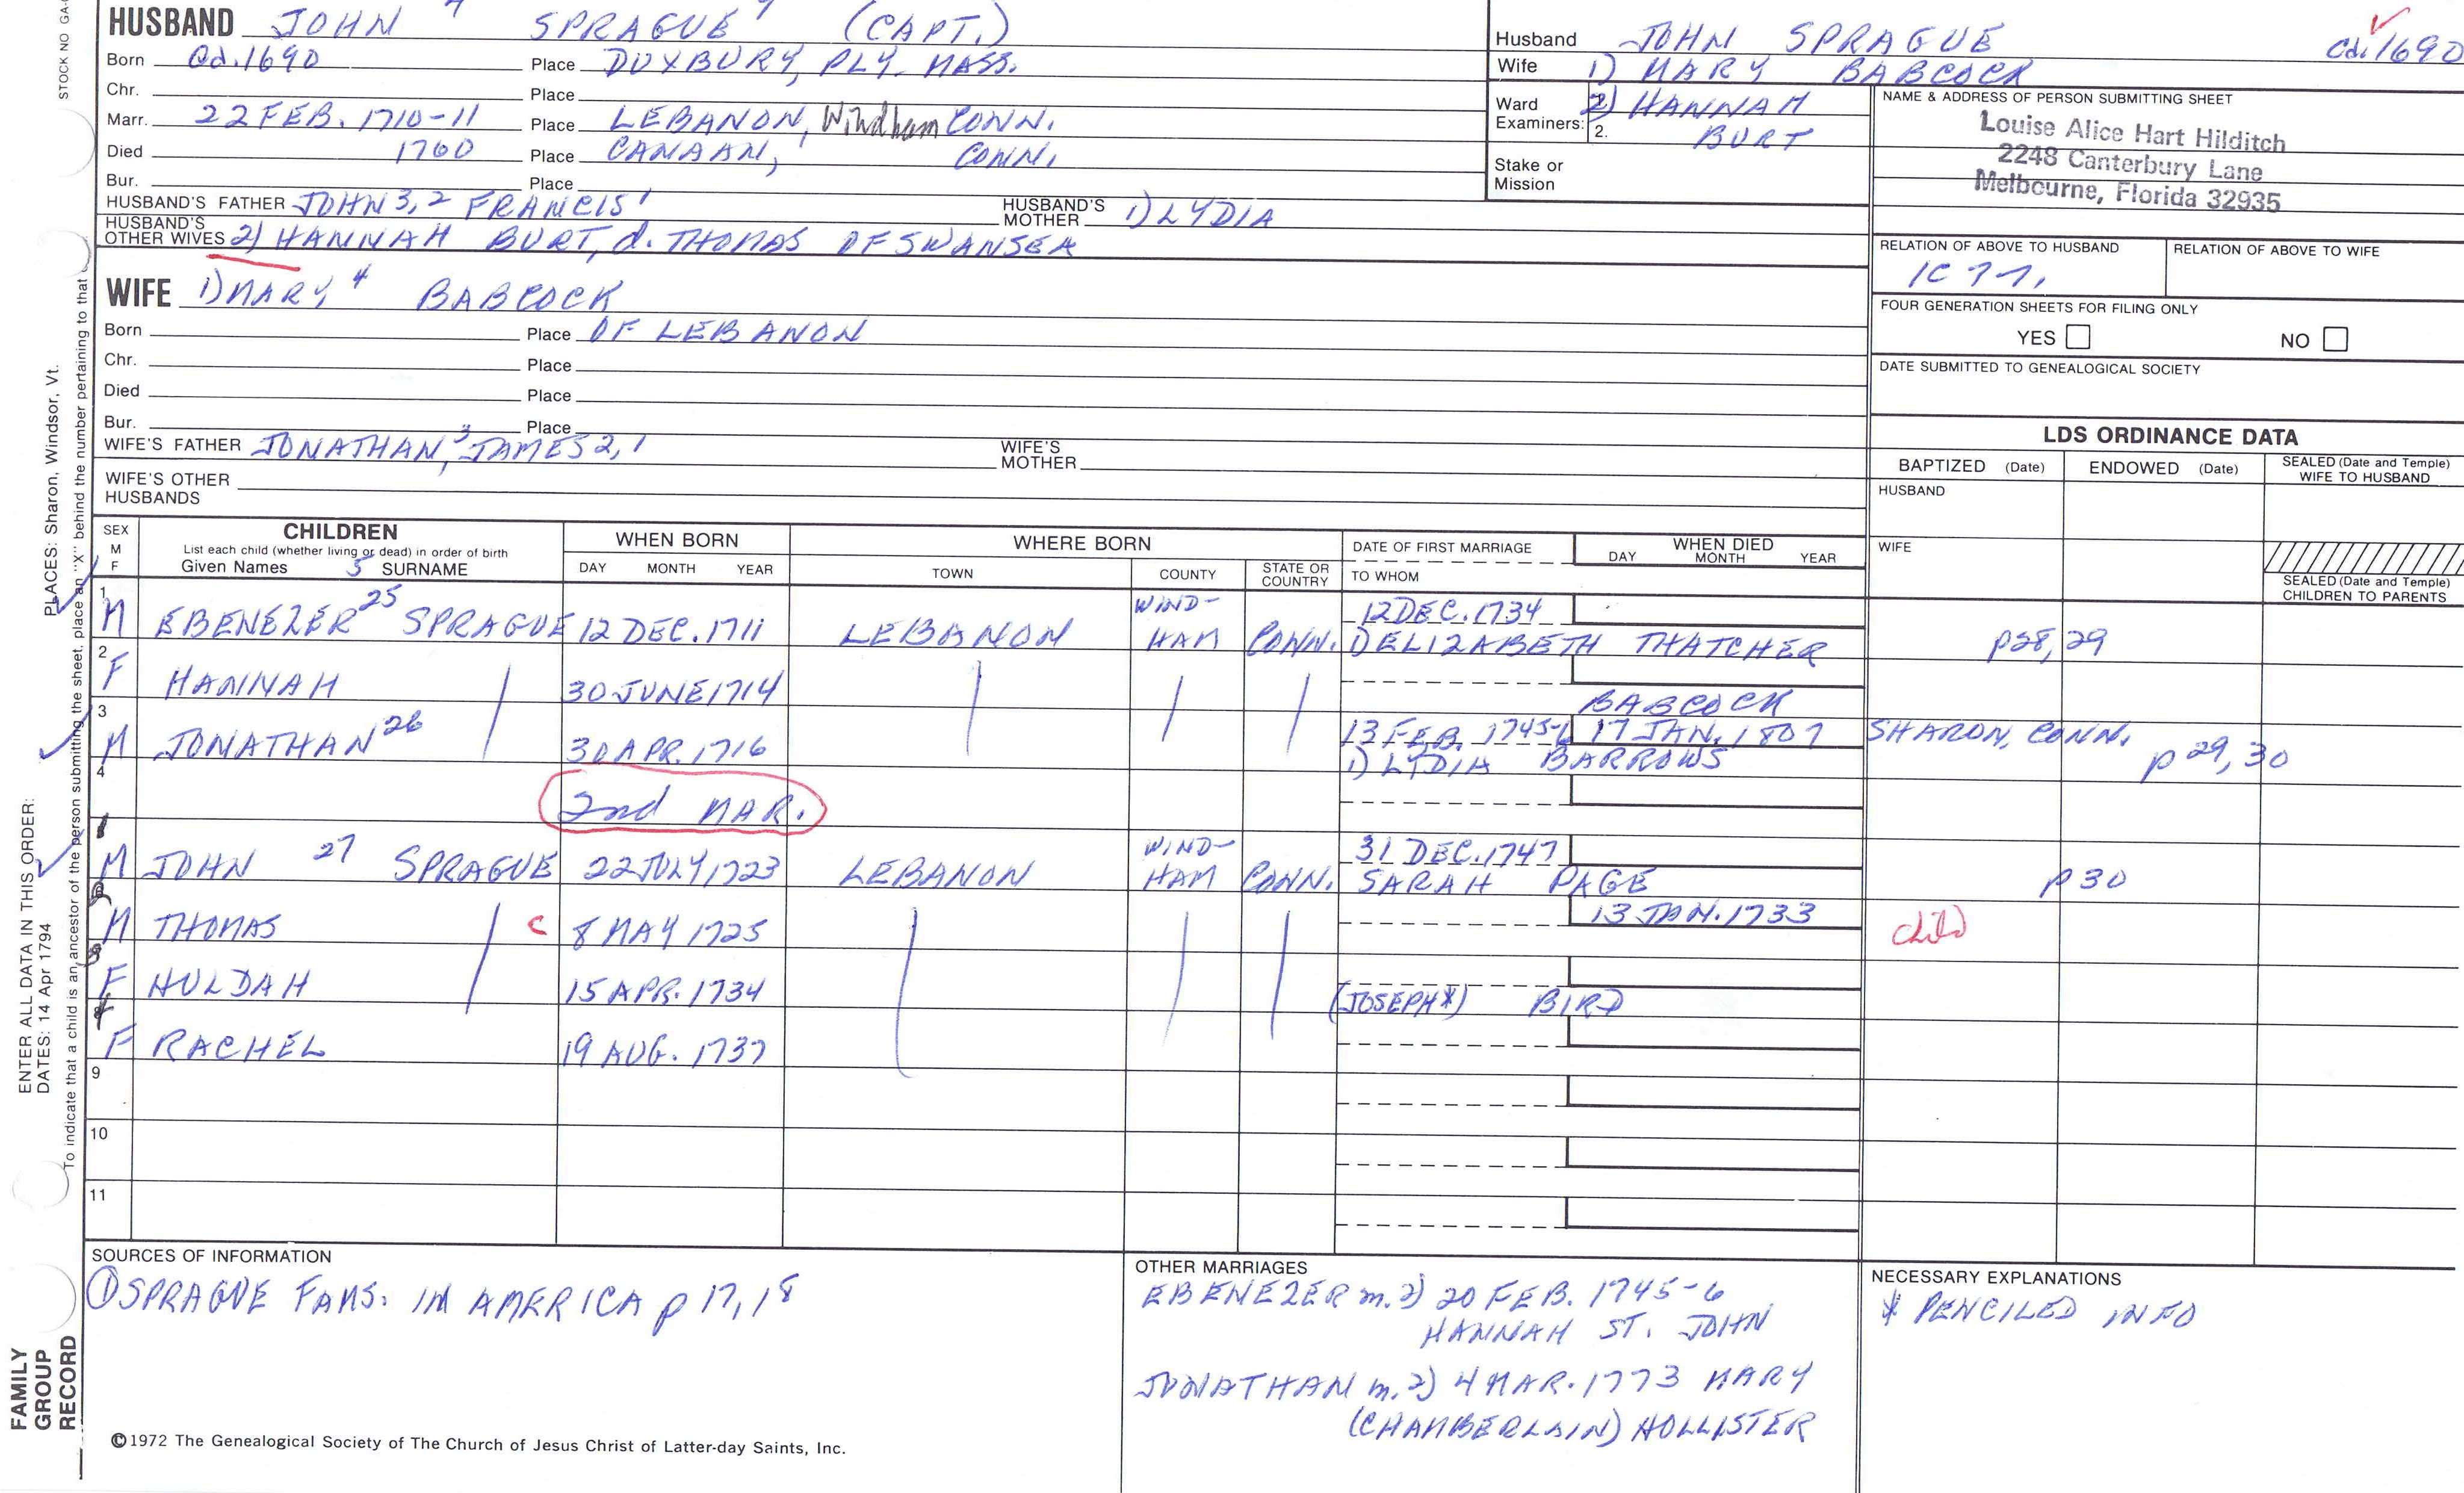 HUSBAND JOHN 4 SPRAGUE (CAPT.)
Born Cd. 1690 Place DUXBURY, PLY. MASS.
Chr. Place
Marr. 22 FEB. 1710-11 Place LEBANON, Windham CONN.
Died 1760 Place CANAAN, CONN.
Bur. Place
HUSBAND'S FATHER JOHN 3,2 FRANCIS 1 HUSBAND'S MOTHER 1) LYDIA
HUSBAND'S OTHER WIVES 2) HANNAH BURT, d. THOMAS OF SWANSEA
WIFE 1) MARY 4 BABCOCK
Born Place OF LEBANON
Chr. Place
Died Place
Bur. Place
WIFE'S FATHER JONATHAN 3, JAMES 2,1 WIFE'S MOTHER
WIFE'S OTHER HUSBANDS
Husband JOHN SPRAGUE Cd. 1690
Wife 1) MARY BABCOCK
Ward Examiners: 2) HANNAH
2. BURT
Stake or Mission
NAME & ADDRESS OF PERSON SUBMITTING SHEET
Louise Alice Hart Hilditch
2248 Canterbury Lane
Melbourne, Florida 32935
RELATION OF ABOVE TO HUSBAND RELATION OF ABOVE TO WIFE
1C 7 7,
FOUR GENERATION SHEETS FOR FILING ONLY
YES NO
DATE SUBMITTED TO GENEALOGICAL SOCIETY
LDS ORDINANCE DATA
BAPTIZED (Date) ENDOWED (Date) SEALED (Date and Temple) WIFE TO HUSBAND
HUSBAND
WIFE
SEALED (Date and Temple) CHILDREN TO PARENTS
SEX M F CHILDREN WHEN BORN WHERE BORN DATE OF FIRST MARRIAGE WHEN DIED
List each child (whether living or dead) in order of birth
Given Names 5 SURNAME DAY MONTH YEAR TOWN COUNTY STATE OR COUNTRY TO WHOM DAY MONTH YEAR
1 M EBENEZER 25 SPRAGUE 12 DEC. 1711 LEBANON WIND-HAM CONN. 12 DEC. 1734
1) ELIZABETH THATCHER p28,29
2 F HANNAH 30 JUNE 1714
BABCOCK
3 M JONATHAN 26 30 APR. 1716 13 FEB. 1745-6 17 JAN. 1807 SHARON, CONN.
1) LYDIA BARROWS p 29,30
4 2nd MAR.
1 M JOHN 27 SPRAGUE 22 JULY 1723 LEBANON WIND-HAM CONN. 31 DEC. 1747
SARAH PAGE p 30
2 M THOMAS c 8 MAY 1725 13 JAN. 1733 child
3 F HULDAH 15 APR. 1734 (JOSEPH*) BIRD
4 F RACHEL 19 AUG. 1737
9
10
11
SOURCES OF INFORMATION
① SPRAGUE FAMS. IN AMERICA p 17,18
OTHER MARRIAGES
EBENEZER m. 2) 20 FEB. 1745-6
HANNAH ST. JOHN
JONATHAN m. 2) 4 MAR. 1773 MARY
(CHAMBERLAIN) HOLLISTER
NECESSARY EXPLANATIONS
* PENCILED INFO
©1972 The Genealogical Society of The Church of Jesus Christ of Latter-day Saints, Inc.
STOCK NO GA-
PLACES: Sharon, Windsor, Vt.
To indicate that a child is an ancestor of the person submitting the sheet, place an "X" behind the number pertaining to that
ENTER ALL DATA IN THIS ORDER:
DATES: 14 Apr 1794
FAMILY
GROUP
RECORD